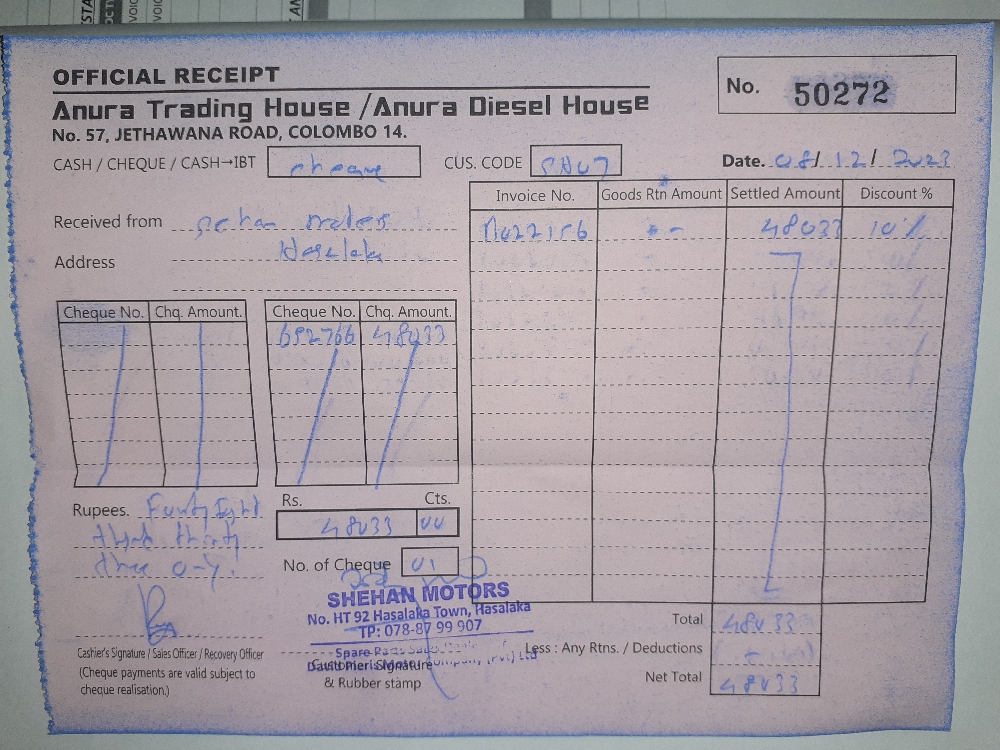 OFFICIAL RECEIPT
No. 50272
Anura Trading House /Anura Diesel House
No. 57, JETHAWANA ROAD, COLOMBO 14.
CASH / CHEQUE / CASH→IBT cheque CUS. CODE
Date. 08/ 12/ 2023
Invoice No. Goods Rtn Amount Settled Amount Discount %
48033 10%
Received from
Address Hasalaka
Cheque No. Chq. Amount. Cheque No. Chq. Amount.
692766 48033
Rs. Cts.
Rupees. Fourty Eight
48033 00
thousand thirty
three only.
No. of Cheque 01
SHEHAN MOTORS
No. HT 92 Hasalaka Town, Hasalaka
TP: 078-87 99 907
Total 48033
Less : Any Rtns. / Deductions
Net Total 48033
Cashier's Signature / Sales Officer / Recovery Officer
(Cheque payments are valid subject to
cheque realisation.)
Spare Parts
Customer Signature
& Rubber stamp